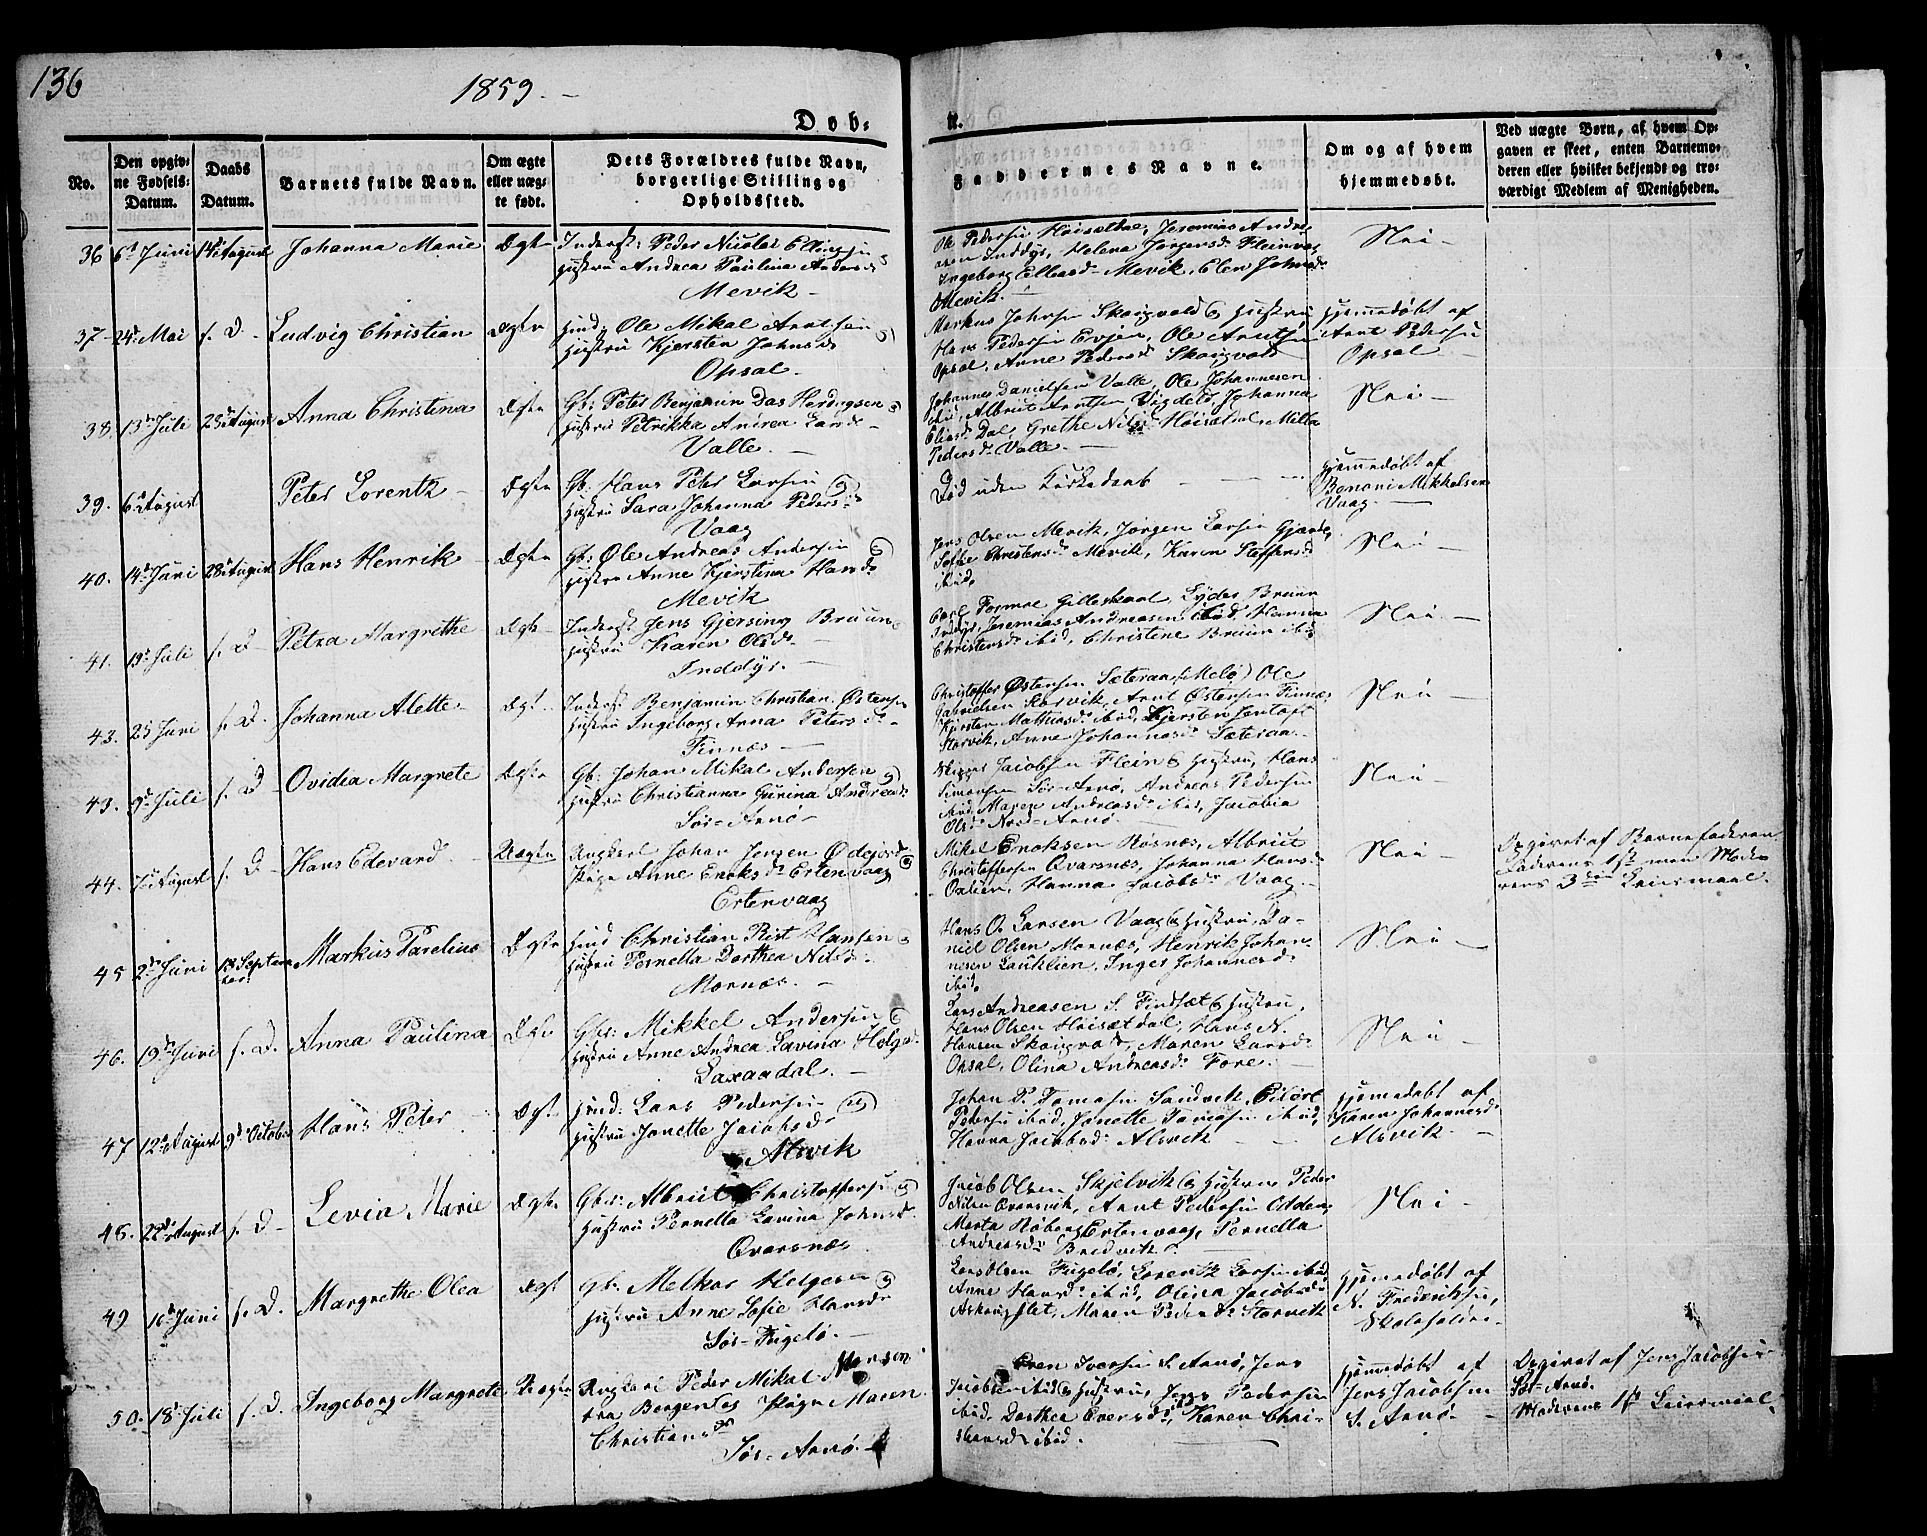 136
1859.
Døb-
te.
No.
Den opgiv-
ne Fødsels-
Datum.
Daabs
Datum.
Barnets fulde Navn.
Om ægte
eller uæg-
te født.
Dets Forældres fulde Navn,
borgerlige Stilling og
Opholdssted.
Faddernes Navne.
Om og af hvem
hjemmedøbt.
Ved uægte Børn, af hvem Op-
gaven er skeet, enten Barnemo-
deren eller hvilket bekjendt og tro-
værdigt Medlem af Menigheden.
36 6t Juni 14t August Johanna Marie Ægte
Inderst: Peder Nicolai Ellingsen
Hustru Andrea Paulina Andersd
Mevik
Ole Pedersen Høisætdal, Jeremias Andre
asen Inddyr, Helena Jørgensd Fleinvær
Ingeborg Ellensd Mevik, Elen Johnsd
Mevik.
Nei
37 24d Mai s. D. Ludvig Christian Ægte
Huusm. Ole Mikal Arntsen
Hustru Kjersten Johnsd
Opsal.
Markus Johnsen Skougvold & Hustru
Hans Pedersen Evjen, Ole Arntsen
Opsal, Anne Pedersd Skougvold
Hjemmedøbt af
Arnt Pedersen
Opsal
38. 13d Juli 25d August Anna Christina Ægte
Gb: Peter Benjamin Das Herdagsen
Hustru Petrikka Andrea Larsd
Valle.
Johannes Danielsen Valle, Ole Johannesen
ibid, Albrigt Arntsen Vigdel, Johanna
Eliasd Dal, Grethe Nilsd Høisætdal, Milla
Pedersd Valle.
Nei
39. 6t August Peter Lorentz Ægte
Gb. Hans Peter Larsen
Hustru Sara Johanna Pedersd
Vaag
Død uden Kirkedaab
Hjemmedøbt af
Benoni Mikkelsen
Vaag
40. 14d Juni 28d August Hans Henrik Ægte
Gb: Ole Andreas Andersen
Hustru Anne Kjerstina Hansd
Mevik
Jens Olsen Mevik, Jørgen Larsen Gjærde,
Sofie Christensd Mevik, Karen Steffensd
ibid.
Nei
41. 19d Juli s. D Petra Margrethe Ægte
Inderst. Jens Gjersing Bruun
Hustru Karen Olsd
Inddyr.
Carl Formoe Gilleskaal, Lyder Bruun
Inddyr, Jeremias Andreasen ibid, Hanna
Christensd ibid, Christine Bruun ibid
Nei
43. 25 Juni s. D. Johanna Alette Ægt
Inderst Benjamin Christian Østensen
Hustru Ingeborg Anna Petersd
Finnæs
Christoffer Østensen Sæteraa (Melø) Ole
Gabrielsen Storvik, Arnt Østensen Finnæs,
Kjersten Mathiasd ibid, Kjersten Jentoft
Storvik, Anne Johannesd Sæteraa
Nei
43. 9d Juli s. D Ovidia Margrete Ægte
Gb: Johan Mikal Andersen
Hustru Christianna Gurina Andreasd
Sør-Arnø
Jacobsen Flein & Hustru, Hans
Simonsen Sør-Arnø, Andreas Pedersen
ibid, Maren Andreasd ibid, Jacobia
Olsd Nord-Arnø.
Nei
44. 7d August s. D Hans Edevard. Uægte
Ungkarl Johan Jensen Ødejord
Pige Anne Enoksd Ertenvaag
Ertenvaag
Mikel Enoksen Røsnæs, Albrigt
Christoffersen Qvarsnæs, Johanna Hansd
Oxlien, Hanna Jacobsd Vaag
Nei
Opgivet af Barnefaderen
Faderens 1ste men Mode
rens 3die Leiermaal.
45 2d Juni 18 Septem
ber Markus Parelius Ægte
Huusm Christian Rist Hansen
Hustru Pernella Dorthea Nilsd
Mornæs.
Hans O. Larsen Vaag & Hustru, Da-
niel Olsen Mornæs, Henrik Johan
nesen Laukli​en, Inger Johannesd
ibid.
Nei
46. 19d Juni s. D. Anna Paulina Ægte
Gbr: Mikkel Andersen
Hustru Anne Andrea Lavina Holgersd
Laxaadal.
Lars Andreasen S. Findsæt & Hustru,
Hans Olsen Høisætdal, Hans N.
Hansen Skougvold, Maren Larsd
Opsal, Olina Andreasd Fore.
Nei
47 12d August 9d October Hans Peter Ægt
Huusm: Lars Pedersen
Hustru Janette Jacobsd
Alsvik
Johan P. Tomasen Sandvik, Eilert
Pedersen ibid, Janette Tomasen ibid,
Hanna Jacobsd Alsvik
Hjemmedøbt af
Karen Johannesd
Alsvik
48. 22d August s. D Levia Marie Ægte
Gbr: Albrigt Christoffersen
Hustru Pernella Lavina Johnsd
Qvarsnæs
Jacob Olsen Skjelvik & Hustru Peder
Nilsen Qvarsvik, Arnt Pedersen Odden,
Merta Røberg Ertenvaag, Pernella
Andreasd Bredvik.
Nei
49 16d Juni s. D. Margrethe Olea Ægt
Gb: Melkor Helgesen
Hustru Anne Sofie Hansd
Sør-Fugelø.
Lars Olsen Fugelø, Lorentz Larsen ibid,
Anne Hansd ibid, Olina Jacobsd
Askougflet, Maren Pedersd Storvik
Hjemmedøbt af
N. Frederiksen,
Skoleholder.
50. 18d Juli s. D. Ingeborg Margrete Uægte
Ungkarl Peder Mikal Monsen
fra Bergen & Pige Maren
Christiansd
Sør-Arnø.
Even Iversen S. Arnø, Jens
Jacobsen ibid & Hustru, Jens Pedersen
ibid, Dorthea Eversd ibid, Karen Chri-
stiansd ibid.
Hjemmedøbt af
Jens Jacobsen
S. Arnø
Opgivet af Jens Jacobsen
Sør-Arnø.
Moderens 1st Leiermaal.